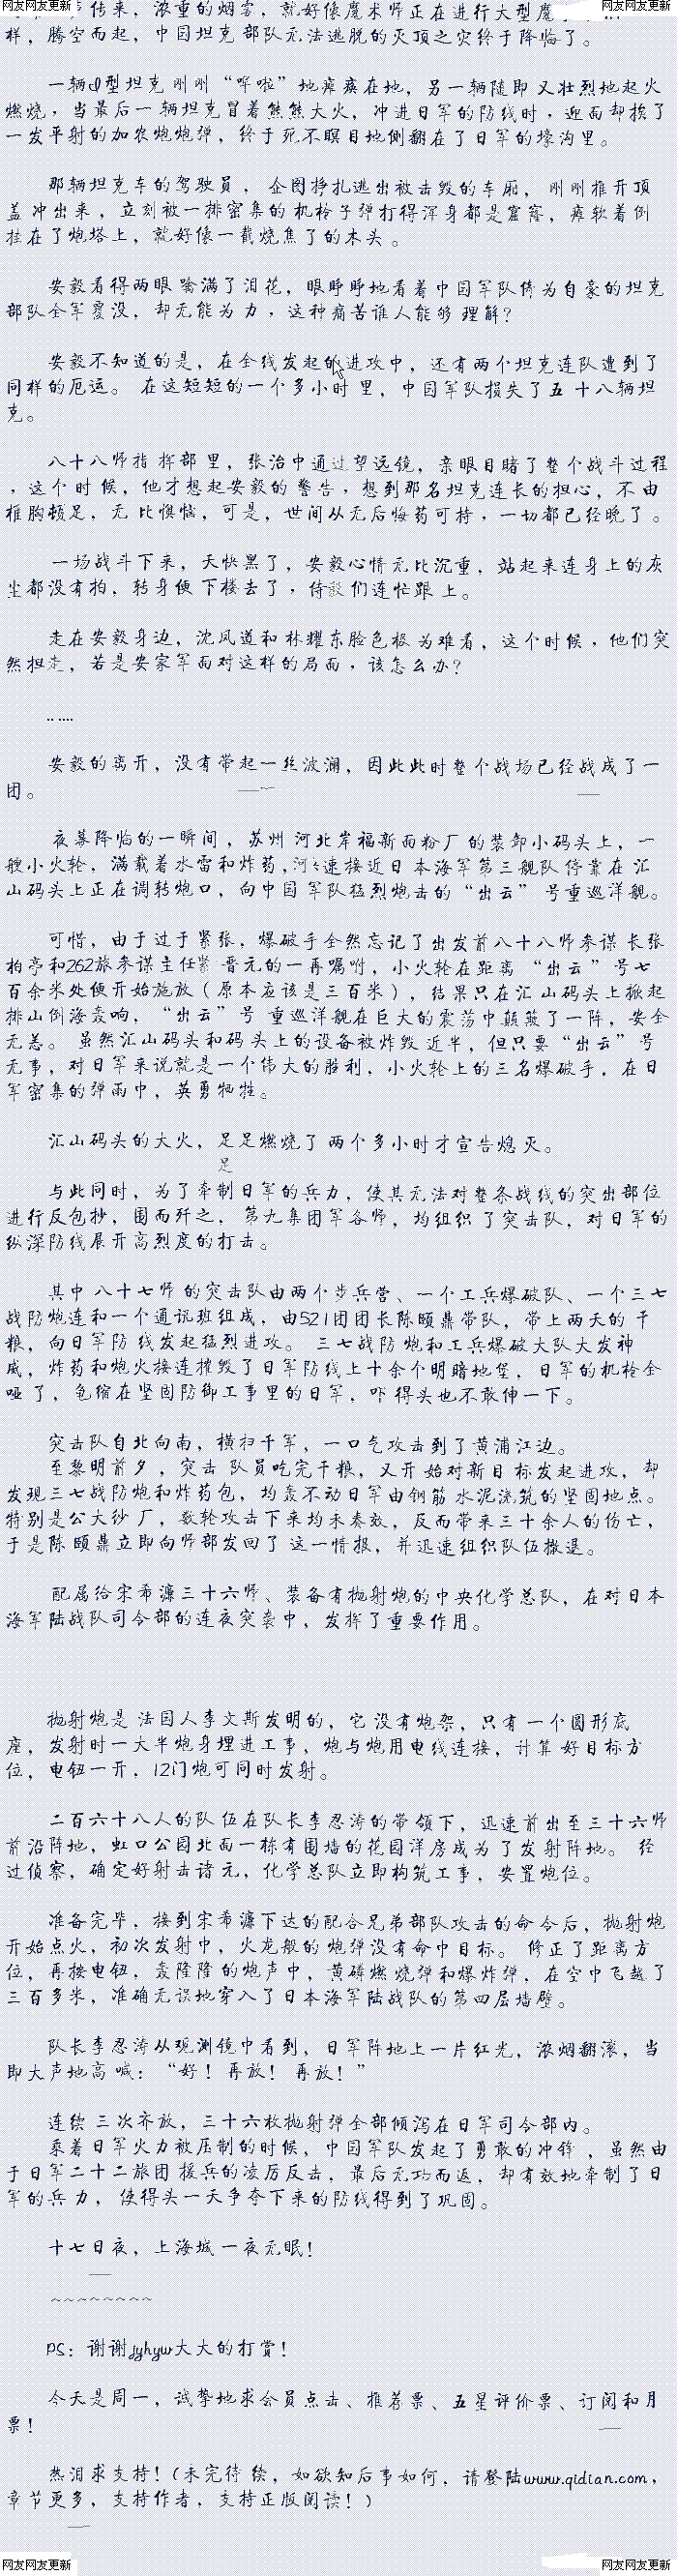 网友网友更新 网友网友更新
传来，浓重的烟雾，就好像魔术师正在进行大型魔
样，腾空而起，中国坦克部队无法逃脱的灭顶之灾终于降临了。
一辆d型坦克刚刚“哗啦”地瘫痪在地，另一辆随即又壮烈地起火
燃烧，当最后一辆坦克冒着熊熊大火，冲进日军的防线时，迎面却挨了
一发平射的加农炮炮弹，终于死不瞑目地侧翻在了日军的壕沟里。
那辆坦克车的驾驶员，企图挣扎逃出被击毁的车厢，刚刚推开顶
盖冲出来，立刻被一排密集的机枪子弹打得浑身都是窟窿，瘫软着倒
挂在了炮塔上，就好像一截烧焦了的木头。
安毅看得两眼噙满了泪花，眼睁睁地看着中国军队倚为自豪的坦克
部队全军覆没，却无能为力，这种痛苦谁人能够理解？
安毅不知道的是，在全线发起的进攻中，还有两个坦克连队遭到了
同样的厄运。在这短短的一个多小时里，中国军队损失了五十八辆坦
克。
八十八师指挥部里，张治中通过望远镜，亲眼目睹了整个战斗过程
，这个时候，他才想起安毅的警告，想到那名坦克连长的担心，不由
椎胸顿足，无比懊恼，可是，世间从无后悔药可持，一切都已经晚了。
一场战斗下来，天快黑了，安毅心情无比沉重，站起来连身上的灰
尘都没有拍，转身便下楼去了，侍毅们连忙跟上。
走在安毅身边，沈凤道和林耀东脸色极为难看，这个时候，他们突
然担走，若是安家军面对这样的局面，该怎么办？
……
安毅的离开，没有带起一丝波澜，因此此时整个战场已经战成了一
团。
夜幕降临的一瞬间，苏州河北岸福新面粉厂的装卸小码头上，一
艘小火轮，满载着水雷和炸药，河速接近日本海军第三舰队停靠在汇
山码头上正在调转炮口，向中国军队猛烈炮击的“出云”号重巡洋舰。
可惜，由于过于紧张，爆破手全然忘记了出发前八十八师参谋长张
柏亭和262旅参谋主任紫晋元的一再嘱咐，小火轮在距离“出云”号七
百余米处便开始施放（原本应该是三百米），结果只在汇山码头上掀起
排山倒海轰响，“出云”号重巡洋舰在巨大的震荡中颠簸了一阵，安全
无恙。虽然汇山码头和码头上的设备被炸毁近半，但只要“出云”号
无事，对日军来说就是一个伟大的胜利，小火轮上的三名爆破手，在日
军密集的弹雨中，英勇牺牲。
汇山码头的大火，足足燃烧了两个多小时才宣告熄灭。
足
与此同时，为了牵制日军的兵力，使其无法对整条战线的突出部位
进行反包抄，围而歼之，第九集团军各师，均组织了突击队，对日军的
纵深防线展开高烈度的打击。
其中八十七师的突击队由两个步兵营、一个工兵爆破队、一个三七
战防炮连和一个通讯班组成，由521团团长陈颐鼎带队，带上两天的干
粮，向日军防线发起猛烈进攻。三七战防炮和工兵爆破大队大发神
威，炸药和炮火接连摧毁了日军防线上十余个明暗地堡，日军的机枪全
哑了，龟缩在坚固防御工事里的日军，吓得头也不敢伸一下。
突击队自北向南，横扫千军，一口气攻击到了黄浦江边。
至黎明前夕，突击队员吃完干粮，又开始对新目标发起进攻，却
发现三七战防炮和炸药包，均轰不动日军由钢筋水泥浇筑的坚固地点。
特别是公大纱厂，数轮攻击下来均未奏效，反而带来三十余人的伤亡，
于是陈颐鼎立即向师部发回了这一情报，并迅速组织队伍撤退。
配属给宋希濂三十六师、装备有抛射炮的中央化学总队，在对日本
海军陆战队司令部的连夜突袭中，发挥了重要作用。
抛射炮是法国人李文斯发明的，它没有炮架，只有一个圆形底
座，发射时一大半炮身埋进工事，炮与炮用电线连接，计算好目标方
位，电钮一开，12门炮可同时发射。
二百六十八人的队伍在队长李忍涛的带领下，迅速前出至三十六师
前沿阵地，虹口公园北面一栋有围墙的花园洋房成为了发射阵地。经
过侦察，确定好射击诸元，化学总队立即构筑工事，安置炮位。
准备完毕，接到宋希濂下达的配合兄弟部队攻击的命令后，抛射炮
开始点火，初次发射中，火龙般的炮弹没有命中目标。修正了距离方
位，再按电钮，轰隆隆的炮声中，黄磷燃烧弹和爆炸弹，在空中飞越了
三百多米，准确无误地穿入了日本海军陆战队的第四层墙壁。
队长李忍涛从观测镜中看到，日军阵地上一片红光，浓烟翻滚，当
即大声地高喊：“好！再放！再放！”
连续三次齐放，三十六枚抛射弹全部倾泻在日军司令部内。
乘着日军火力被压制的时候，中国军队发起了勇敢的冲锋，虽然由
于日军二十二旅团援兵的凌厉反击，最后无功而返，却有效地牵制了日
军的兵力，使得头一天争夺下来的防线得到了巩固。
十七日夜，上海城一夜无眠！
~~~~~~~~
PS：谢谢jyhyw大大的打赏！
今天是周一，诚挚地求会员点击、推荐票、五星评价票、订阅和月
票！
热泪求支持！（未完待续，如欲知后事如何，请登陆www.qidian.com，
章节更多，支持作者，支持正版阅读！）
网友网友更新 网友网友更新